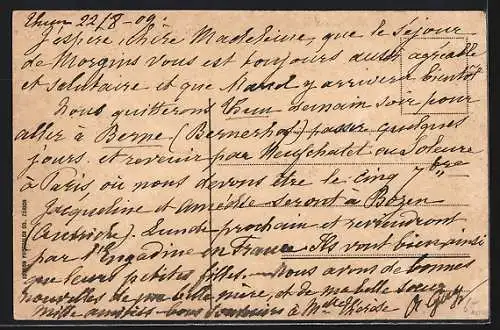 Thun 22/8-09.
J'espère, chère Madeleine, que le séjour
de Morgins vous est toujours aussi agréable
et salutaire et que Marcel y arrivera bientôt
Nous quitterons Thun demain soir pour
aller à Berne (Bernerhof) passer quelques
jours et revenir par Neufchatel ou Soleure
à Paris, où nous devons être le cinq 7bre
Jacqueline et Amédée seront à Bozen
(Autriche) Lundi prochain et reviendront
par l'Engadine en France. Ils vont bien ainsi
que leurs petites filles. Nous avons de bonnes
nouvelles de ma belle mère, et de ma belle sœur
Mille amitiés bons souvenirs à Mlle